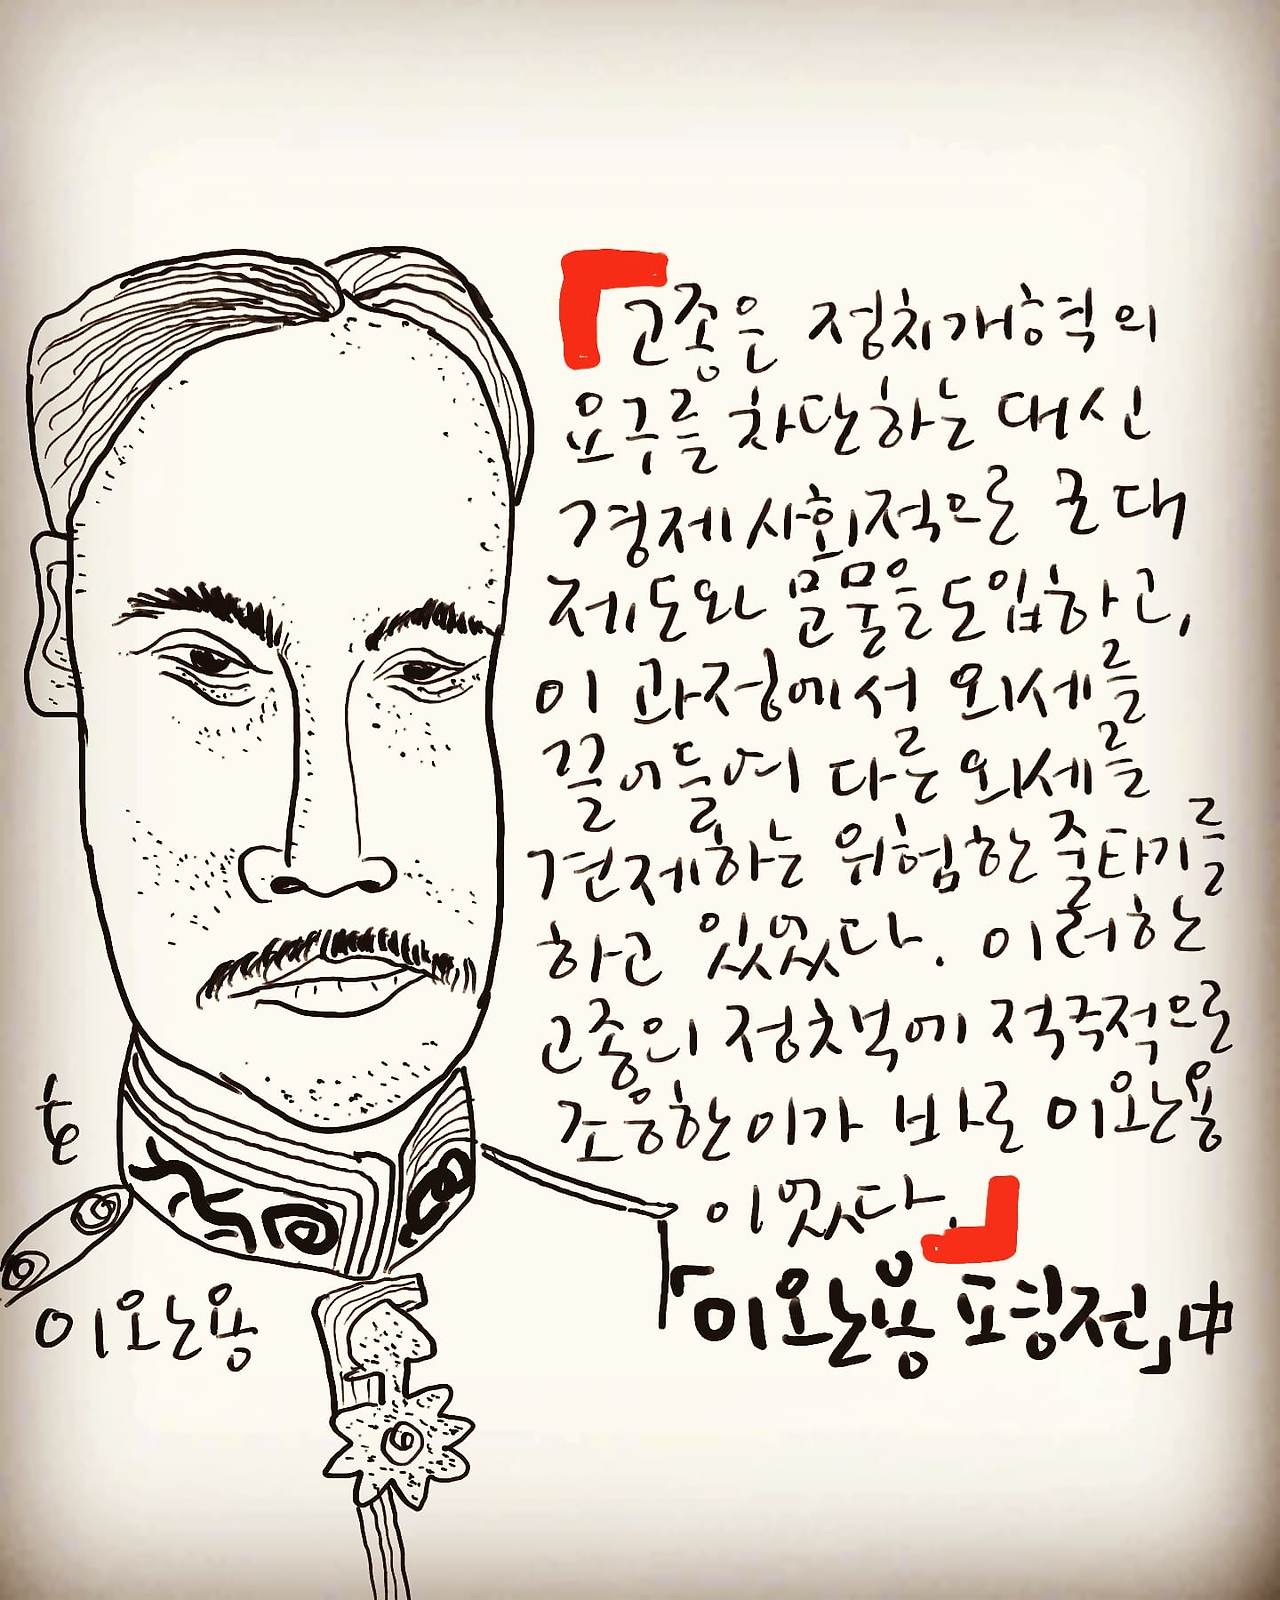 고종은 정치개혁의
요구를 차단하는 대신
경제사회적으로 근대
제도와 문물을 도입하고,
이 과정에서 외세를
끌어들여 다른 외세를
견제하는 위험한 줄타기를
하고 있었다. 이러한
고종의 정책에 적극적으로
조응한이가 바로 이완용
이었다.
「이완용 평전」中
이완용